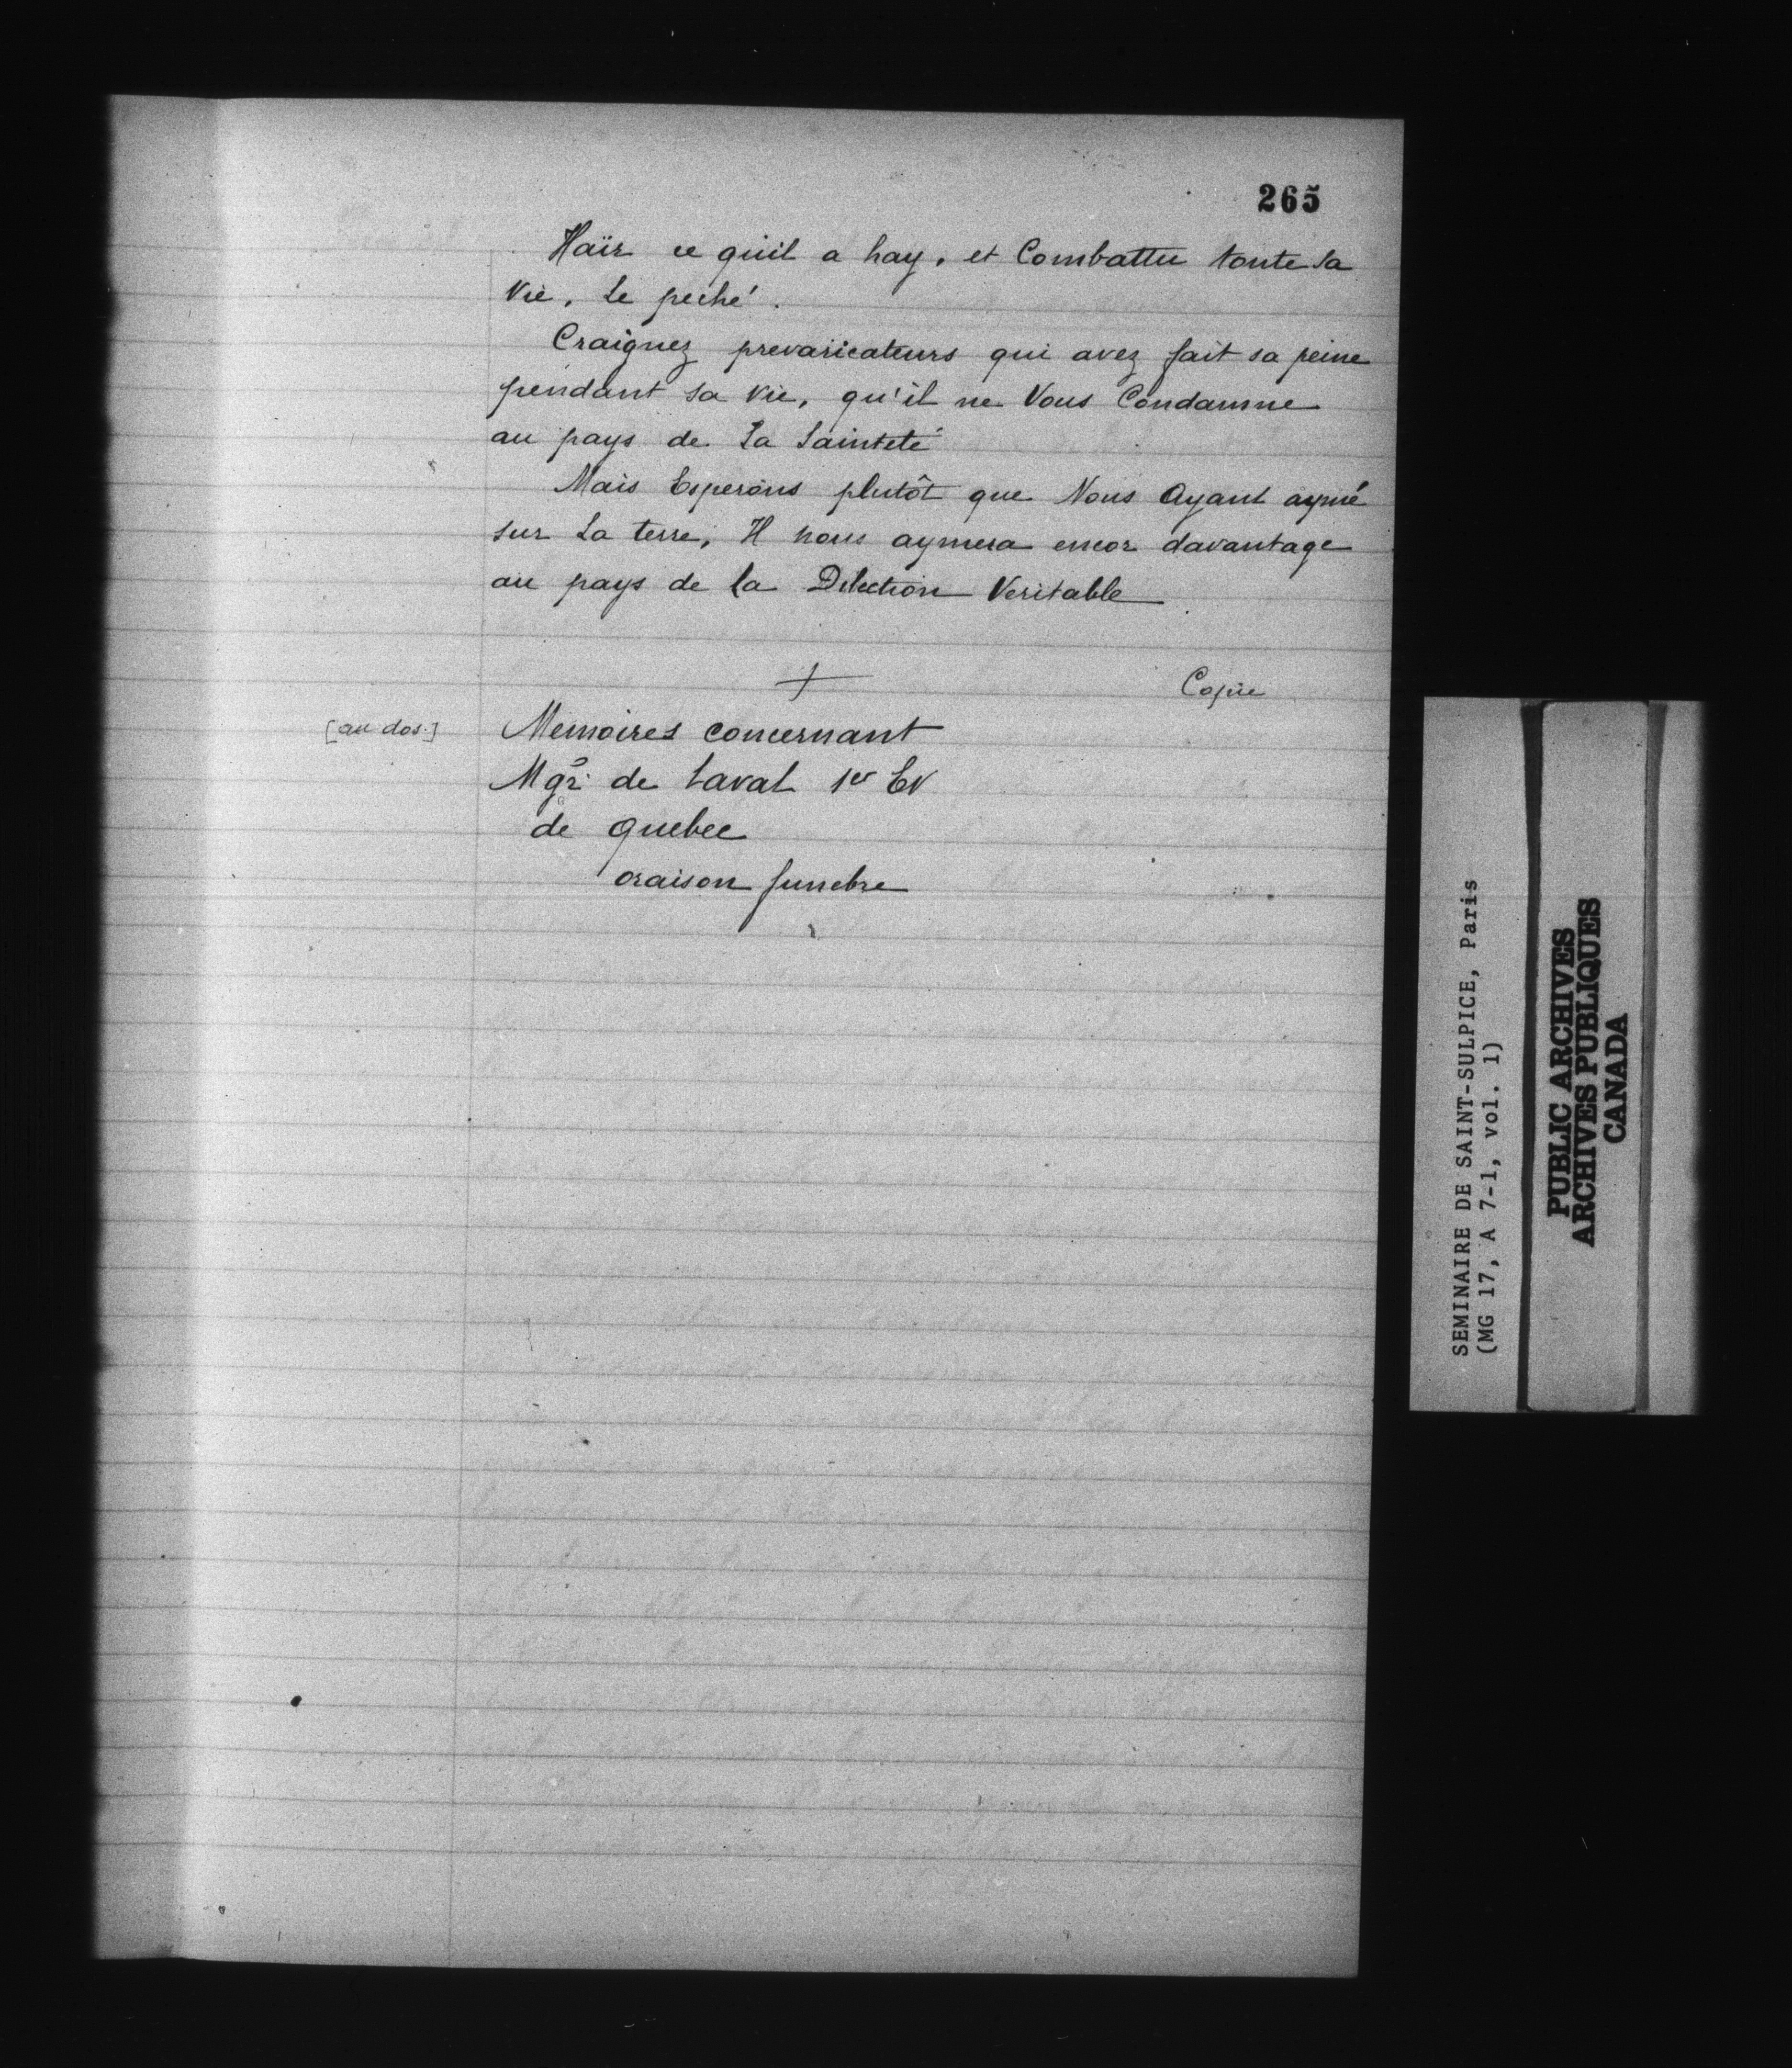 265
Haïr ce qu'il a hay, et Combattu toute sa
vie, Le peché.
Craignez prevaricateurs qui avez fait sa peine
pendant sa vie, qu'il ne Vous Condamne
au pays de La Sainteté
Mais Esperons plutôt que Nous Ayant aymé
sur La terre, Il nous aymera encor davantage
au pays de la Dilection Veritable.
Copie
[au dos.] Memoires concernant
Mgr. de Laval 1er Ev
de Quebec
oraison funebre
SEMINAIRE DE SAINT-SULPICE, Paris
(MG 17, A 7-1, vol. 1)
PUBLIC ARCHIVES
ARCHIVES PUBLIQUES
CANADA